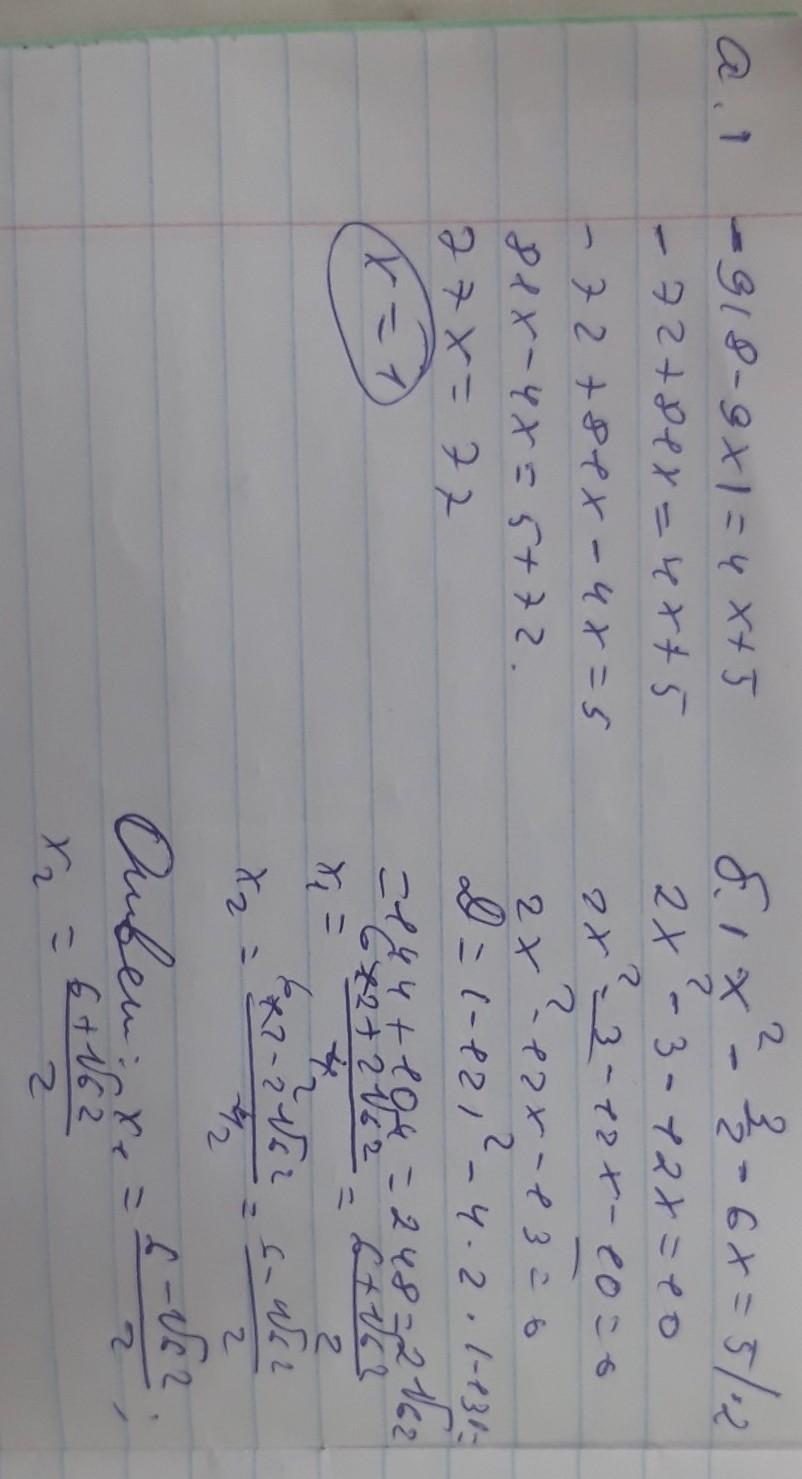 а.) -9(8-9x)=4x+5
-72+81x=4x+5
-72+81x-4x=5
81x-4x=5+72.
77x=77
x=1
б.) x²-3/2-6x=5/·2
2x²-3-12x=10
2x²-3-12x-10=0
2x²-12x-13=0
D=(-12)²-4·2·(-13)=
=144+104=248=2√62
x₁=12+2√62/4=6+√62/2
x₂=12-2√62/4=6-√62/2
Ответ: x₁=6-√62/2;
x₂=6+√62/2